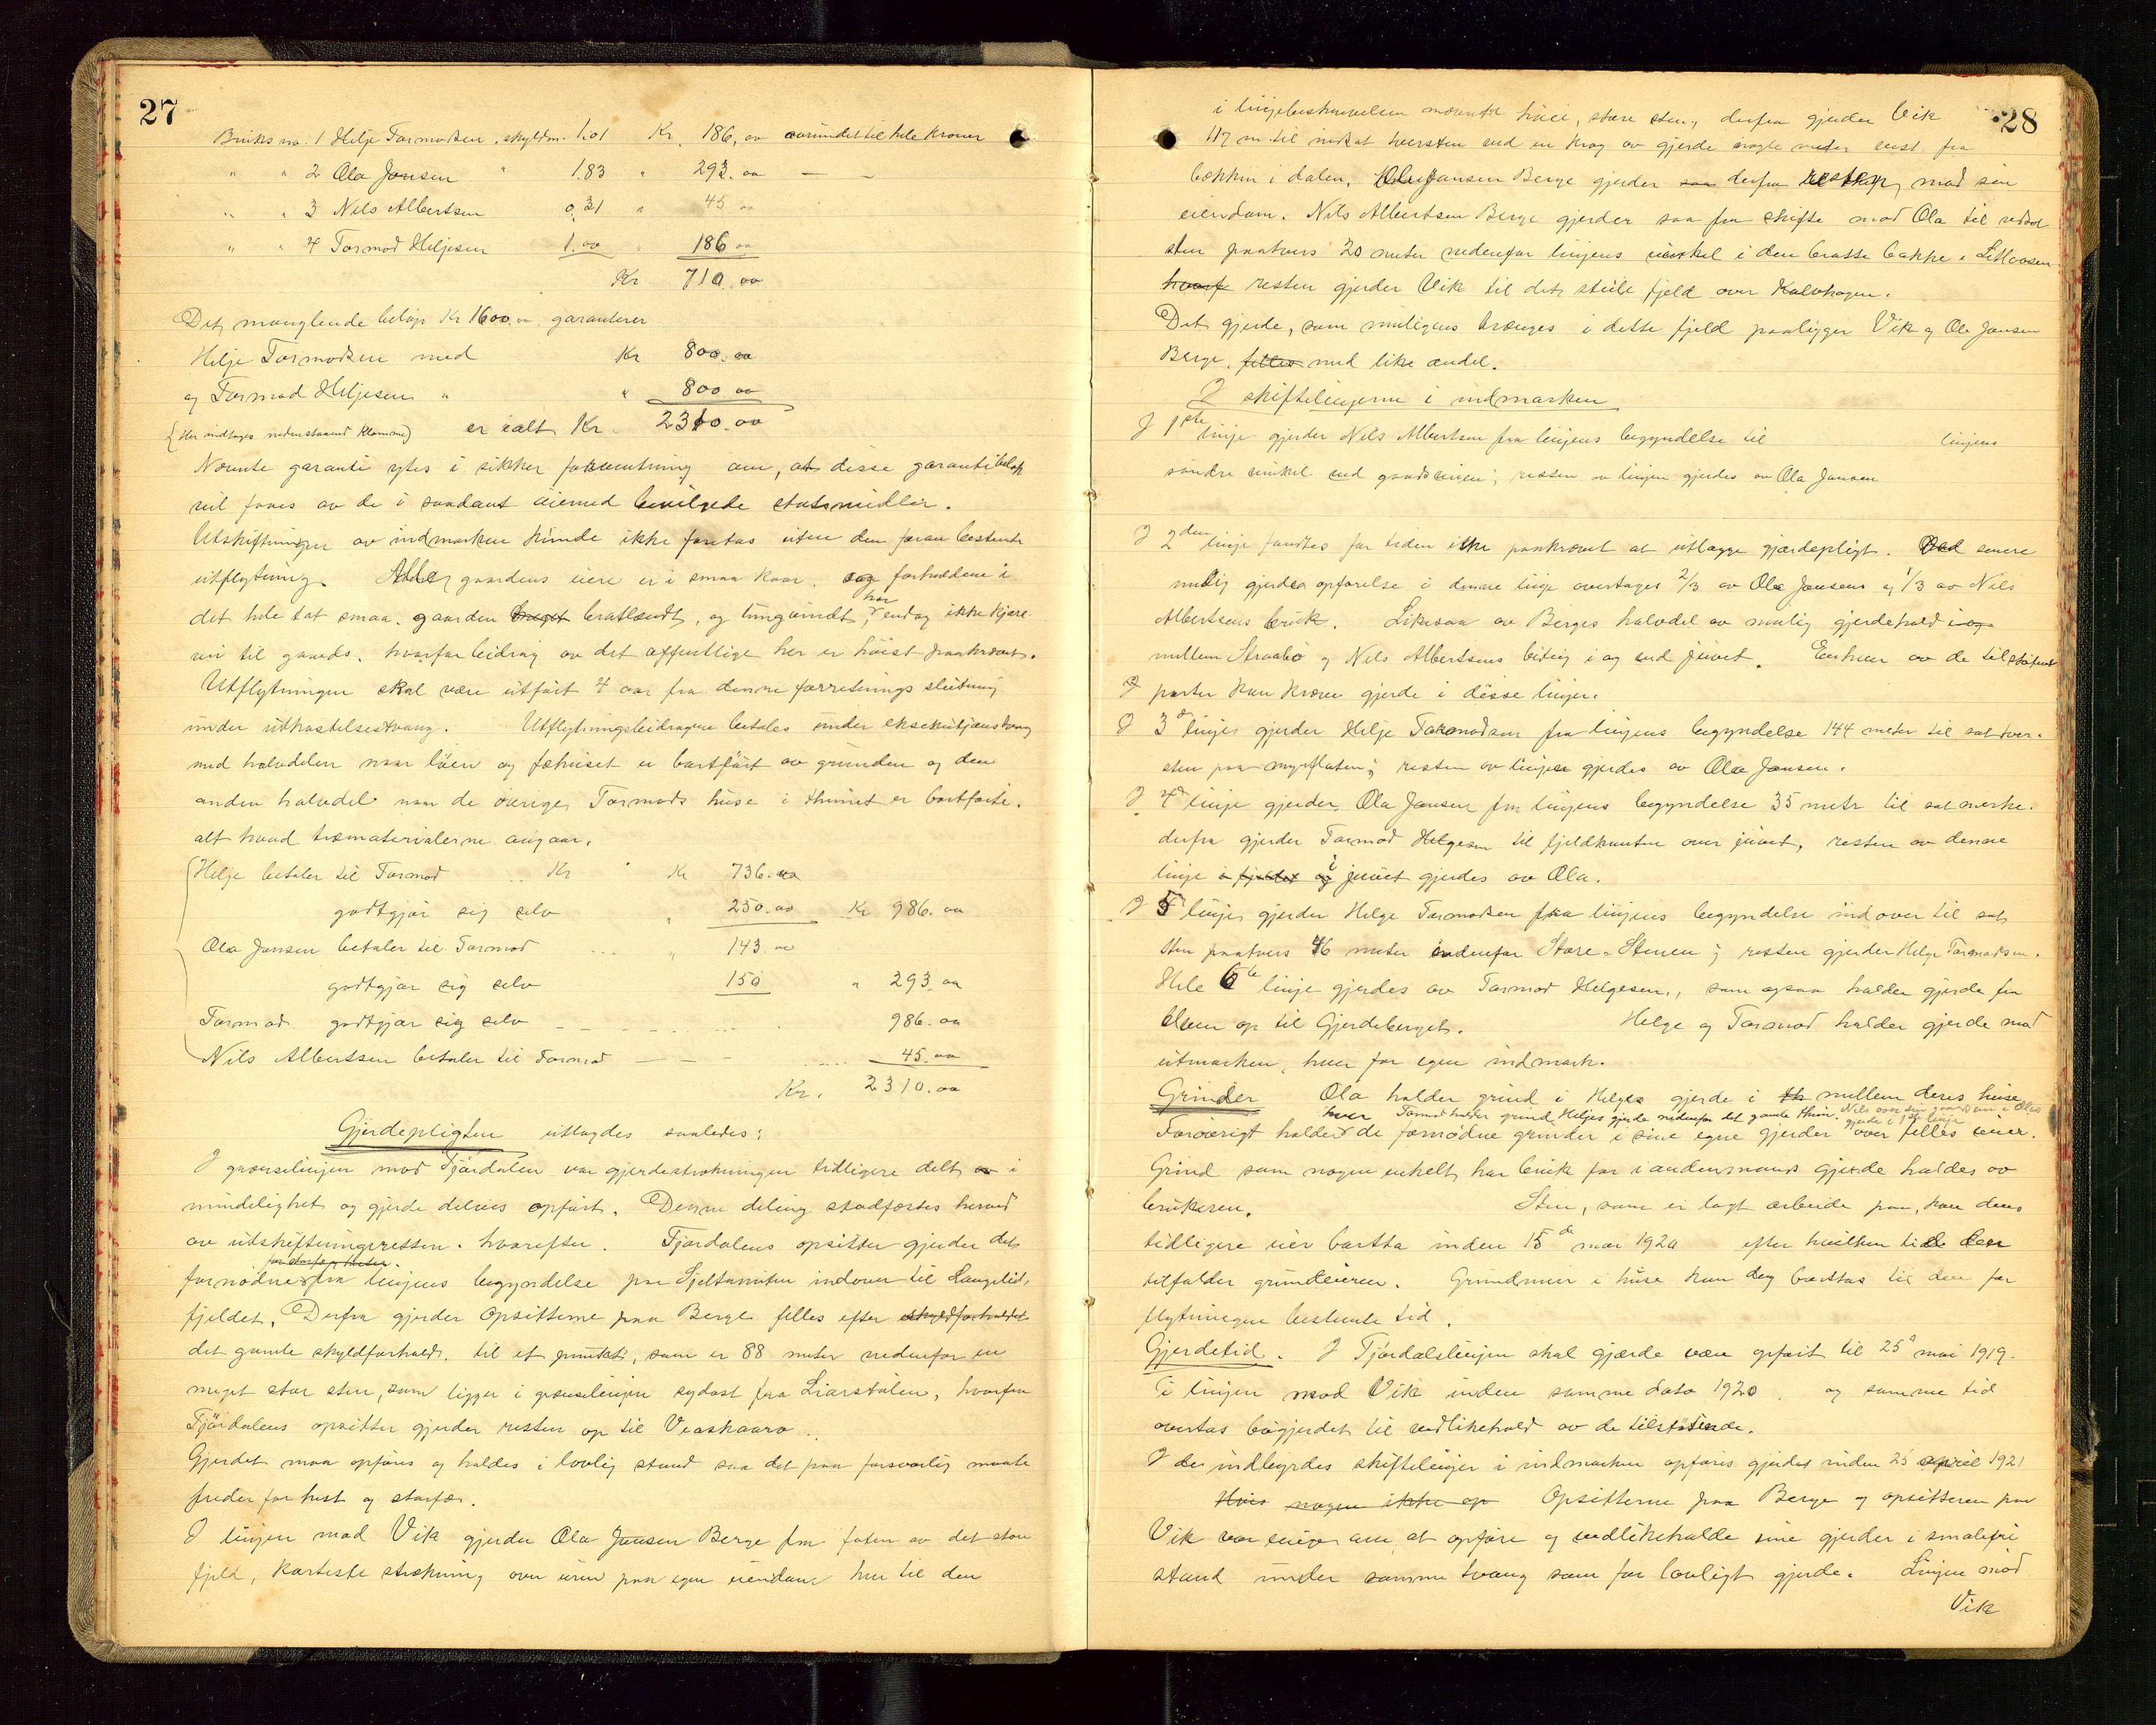 27
Bruks no. 1 Helje Tormodsen, skyldm. 1.01 Kr. 186,oo avrundet til hele kroner
" " 2 Ola Jansen " 1.83 " 293.oo — —
" " 3 Nils Albertsen 0.31 " 45 oo
" " 4 Tormod Heljesen 1.oo " 186 oo
Kr 710.oo
Det manglende beløp Kr 1600.oo garanterer
Helje Tormodsen med Kr 800.oo
og Tormod Heljesen " " 800.oo
(Her indtages nedenstaaende Klamme) er ialt Kr. 2310.oo
Nævnte garanti ytes i sikker forventning om, at disse garantibeløp
vil faaes av de i saadant øiemed bevilgede statsmidler.
Utskiftningen av indmarken kunde ikke foretas uten den foran bestemte
utflytning. Alle gaardens eiere er i smaa kaar, og forholdene i
det hele tat smaa, gaarden meget bratlændt, og tungvindt, har endog ikke kjøre-
vei til gaards, hvorfor bidrag av det offentlige her er høist paakrævet.
Utflytningen skal være utført 4 aar fra denne forretnings slutning
under utkastelsestvang. Utflytningsbidragene betales under eksekutjonstvang
med halvdelen naar løen og fæhuset er bortført av grunden og den
anden halvdel naar de øvrige Tormods huse i thunet er bortførte,
alt hvad træmaterialerne angaar.
Helje betaler til Tormod .. Kr " Kr 736.oo
godtgjør sig selv " 250.oo Kr 986.oo
Ola Jansen betaler til Tormod ... " 143.oo
godtgjør sig selv 150 " 293.oo
Tormod godtgjør sig selv 986.oo
Nils Albertsen betaler til Tormod — — — 45.oo
Kr. 2310.oo
Gjerdepligten utlagdes saaledes:
I grænselinjen mod Fjørdalen var gjerdestrækningen tidligere delt i
mindelighet og gjerde delvis opført. Denne deling stadfæstes herved
av utskiftningsretten. hvorefter. Fjordalens opsitter gjerder det
for storfe og hester.
fornødne fra linjens begyndelse paa Sjeltanuten indover til Langelid-
fjeldet. Derfra gjerder Opsitterne paa Berge felles efter skyldforholdet
det gamle skyldforhold. til et punkt, som er 88 meter nedenfor en
meget stor sten, som ligger i grænselinjen sydost fra Liarstølen, hvorfra
Fjördalens opsitter gjerder resten op til Veaskaara.
Gjerdet maa opføres og holdes i lovlig stand saa det paa forsvarlig maate
freder for hest og storfæ.
I linjen mod Vik gjerder Ola Jansen Berge fra foten av det store
fjeld, korteste strækning over uren paa egen eiendom hen til den
28
i linjebeskrivelsen nævnte høie, store sten, derfra gjerder Vik
117 m til nedsat tversten ved en krog av gjerde nogle meter vest fra
bækken i dalen. Ola Jansen Berge gjerder saa derfra resten, mod sin
eiendom. Nils Albertsen Berge gjerder saa fra skifte mod Ola til nedsat
sten paatvers 20 meter nedenfor linjens vinkel i den bratte bakke i
hvorf resten gjerder Vik til det steile fjeld over Kalvhagen.
Det gjerde, som muligens trænges i dette fjeld paaligger Vik og Ola Jansen
Berge, felles med like andel.
I skiftelinjerne i indmarken
I 1ste linje gjerder Nils Albertsen fra linjens begyndelse til linjens
søndre vinkel ved gaardsveien; resten av linjen gjerdes av Ola Jansen
I 2den linje fandtes for tiden ikke paakrævet at utlægge gjærdepligt. Ved senere
mulig gjerdes opførelse i denne linje overtages 2/3 av Ola Jansens og 1/3 av Nils
Albertsens bruk. Likesaa av Berges halvdel av mulig gjerdehold i og
mellem Straabø og Nils Albertsens biteig i og ved juvet. Enhver av de tilstøtende
parter kan kræve gjerde i disse linjer.
I 3die linje gjerder Helje Tormodsen fra linjens begyndelse 144 meter til sat tver-
sten paa myrflaten; resten av linjen gjerdes av Ola Jansen.
I 4de linje gjerder Ola Jansen fra linjens begyndelse 35 meter til sat merke.
derfra gjerder Tormod Helgesen til fjeldkanten over juvet, resten av denne
linje i fjeldet og i juvet gjerdes av Ola.
I 5te linje gjerder Helge Tormodsen fra linjens begyndelse indover til sat
sten paatvers 46 meter indenfor Store-Stenen; resten gjerder Helge Tormodsen.
Hele 6te linje gjerdes av Tormod Helgesen, som ogsaa holder gjerde fra
Elven op til Gjerdeberget. Helge og Tormod holder gjerde mod
utmarken, hver for egen indmark.
Grinder Ola holder grind i Helges gjerde i th mellem deres huse
hver Tormod holder grind Heljes gjerde nedenfor det gamle thun. Nils over den gaardsvei i Olas gjerde i 1ste linje
Forøvrigt holder de fornødne grinder i sine egne gjerder over felles veier.
Grind som nogen enkelt har bruk for i andenmands gjerde holdes av
brukeren. Sten, som er lagt arbeide paa, kan dens
tidligere eier bortta inden 15de mai 1920 efter hvilken tid den
tilfalder grundeieren. Grundmur i huse kan dog borttas til den for
flytningen bestemte tid.
Gjerdetid. I Fjordalslinjen skal gjærde være opført til 25de mai 1919.
i linjen mod Vik inden samme dato 1920. og samme tid
overtas bøgjerdet til vedlikehold av de tilstøtende.
I de indbyrdes skiftelinjer i indmarken opføres gjerder inden 25 april 1921
Hvis nogen ikke op Opsitterne paa Berge og opsitteren paa
Vik var enige om at opføre og vedlikeholde sine gjerder i smalefri
stand under samme tvang som for lovligt gjerde. Linjen mod
Vik